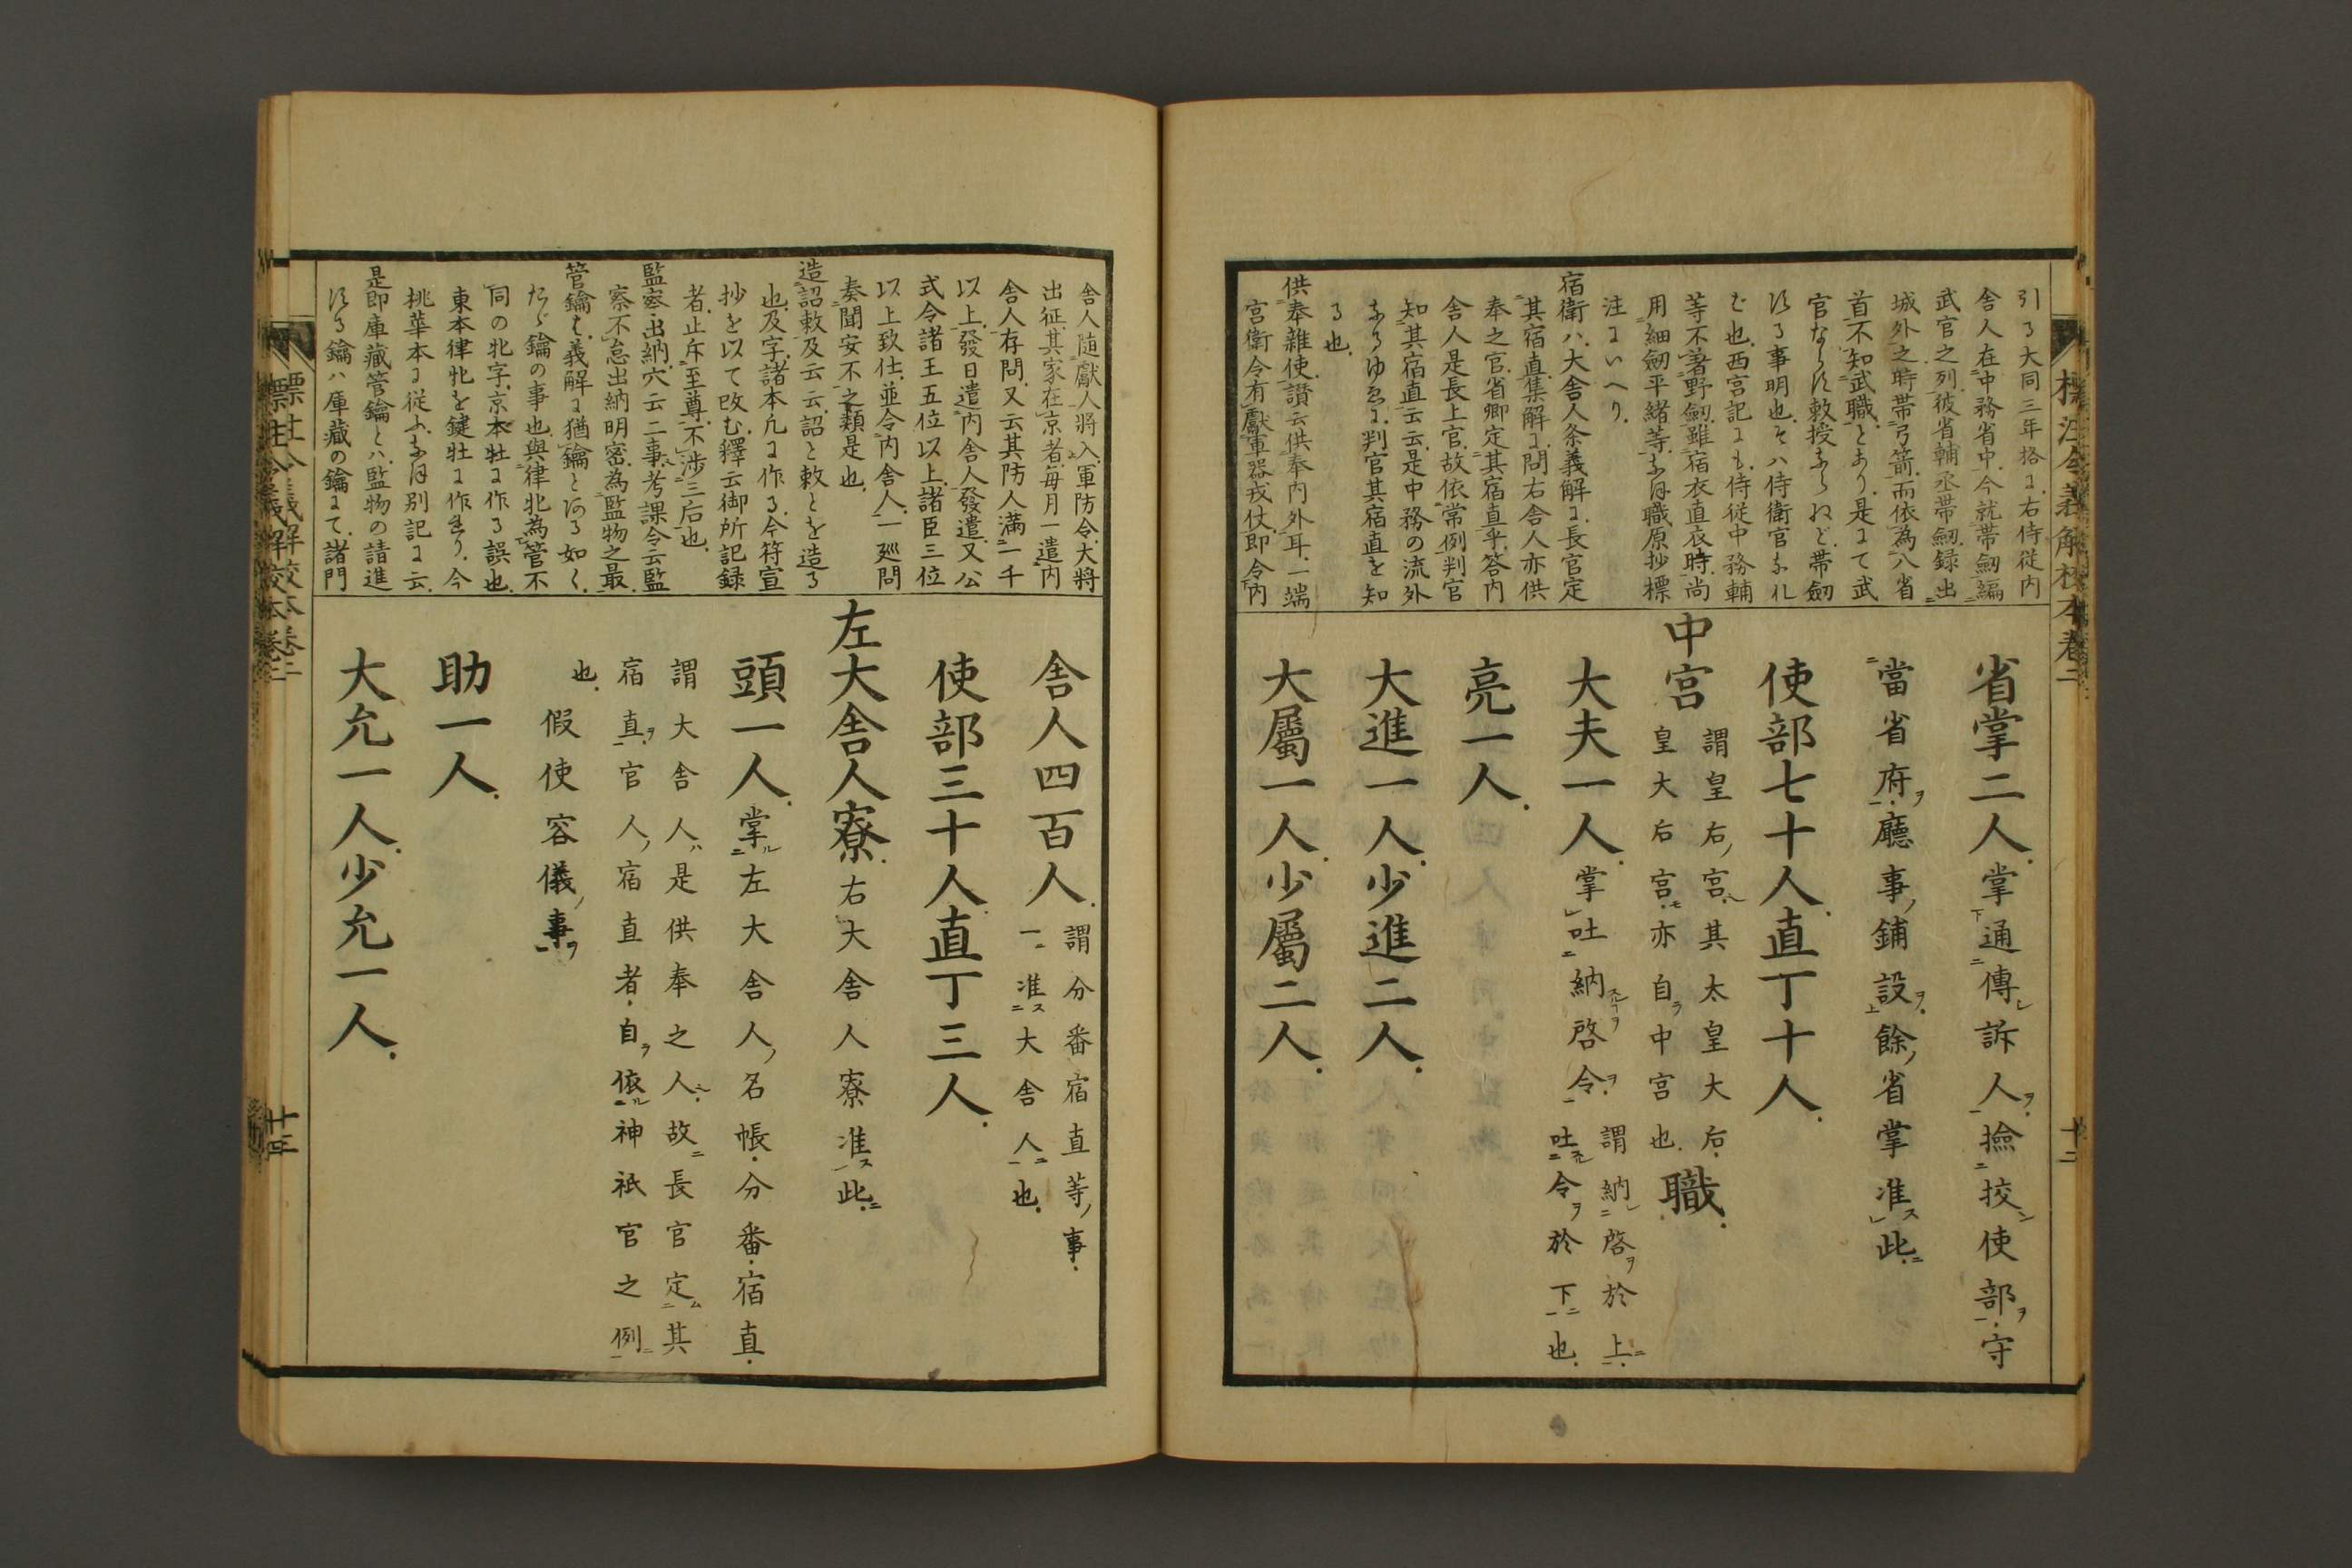 標注令義解校本卷二
十二
引る大同三年格に右侍従内
舎人在中務省中今就帯劔編
武官之列彼省輔丞帯劔録出
城外之時帯弓箭而依為八省
首不知武職とあり是にて武
官ならす敕授ならねど帯劔
する事明也そハ侍衛官なれ
ば也西宮記にも侍従中務輔
等不著野劔雖宿衣直衣時尚
用細劔平緒等なほ職原抄標
注にいへり
宿衛ハ大舎人条義解に長官定
其宿直集解に問右舎人亦供
奉之官省卿定其宿直乎答内
舎人是長上官故依常例判官
知其宿直云云是中務の流外
なるゆゑに判官其宿直を知
る也
供奉雜使讃云供奉内外耳一端
宮衛令有獻軍器戎仗即令内
省掌二人掌通傳訴人撿挍使部守
當省府廳事鋪設餘省掌准此
使部七十人直丁十人
中宮謂皇后宮其太皇大后
皇大后宮亦自中宮也職
大夫一人掌吐納啓令謂納啓於上
吐令於下也
亮一人
大進一人少進二人
大屬一人少屬二人
舎人随獻人將入軍防令大將
出征其家在京者毎月一遣内
舎人存問又云其防人満一千
以上發日遣内舎人發遣又公
式令諸王五位以上諸臣三位
以上致仕並令内舎人一巡問
奏聞安不之類是也
造詔敕及云云詔と敕とを造る
也及字諸本凡に作る今符宣
抄を以て改む釋云御所記録
者止斥至尊不渉三后也
監察出納穴云二事考課令云監
察不怠出納明密為監物之最
管鑰は義解に猶鑰とある如く
たゞ鑰の事也與律牝為管不
同の牝字京本牡に作る誤也
東本律牝を鍵牡に作れり今
桃華本に従ふなほ別記に云
是即庫藏管鑰とハ監物の請進
する鑰ハ庫藏の鑰にて諸門
舎人四百人謂分番宿直等事
一准大舎人也
使部三十人直丁三人
左大舎人寮右大舎人寮准此
頭一人掌左大舎人名帳分番宿直
謂大舎人是供奉之人故長官定其
宿直官人宿直者自依神祇官之例
也
假使容儀事
助一人
大允一人少允一人
標注令義解校本卷二
十三